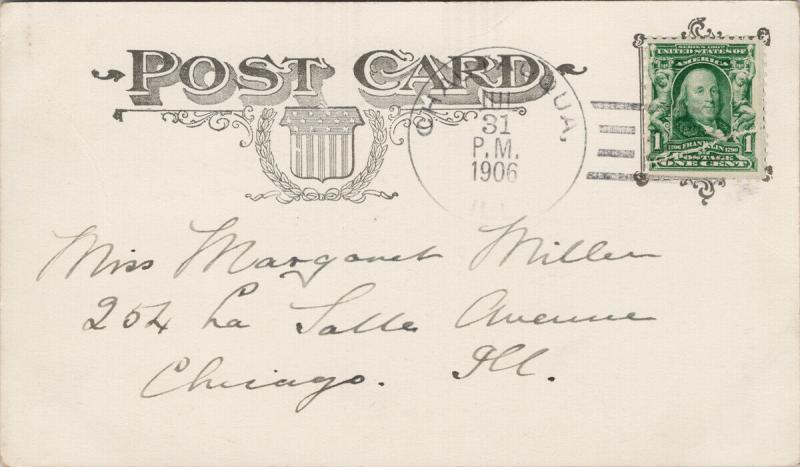 POST CARD
31
P.M.
1906
SERIES 1902
UNITED STATES OF
AMERICA
1 1706 FRANKLIN 1790 1
POSTAGE
ONE CENT
Miss Margaret Miller
254 La Salle Avenue
Chicago. Ill.